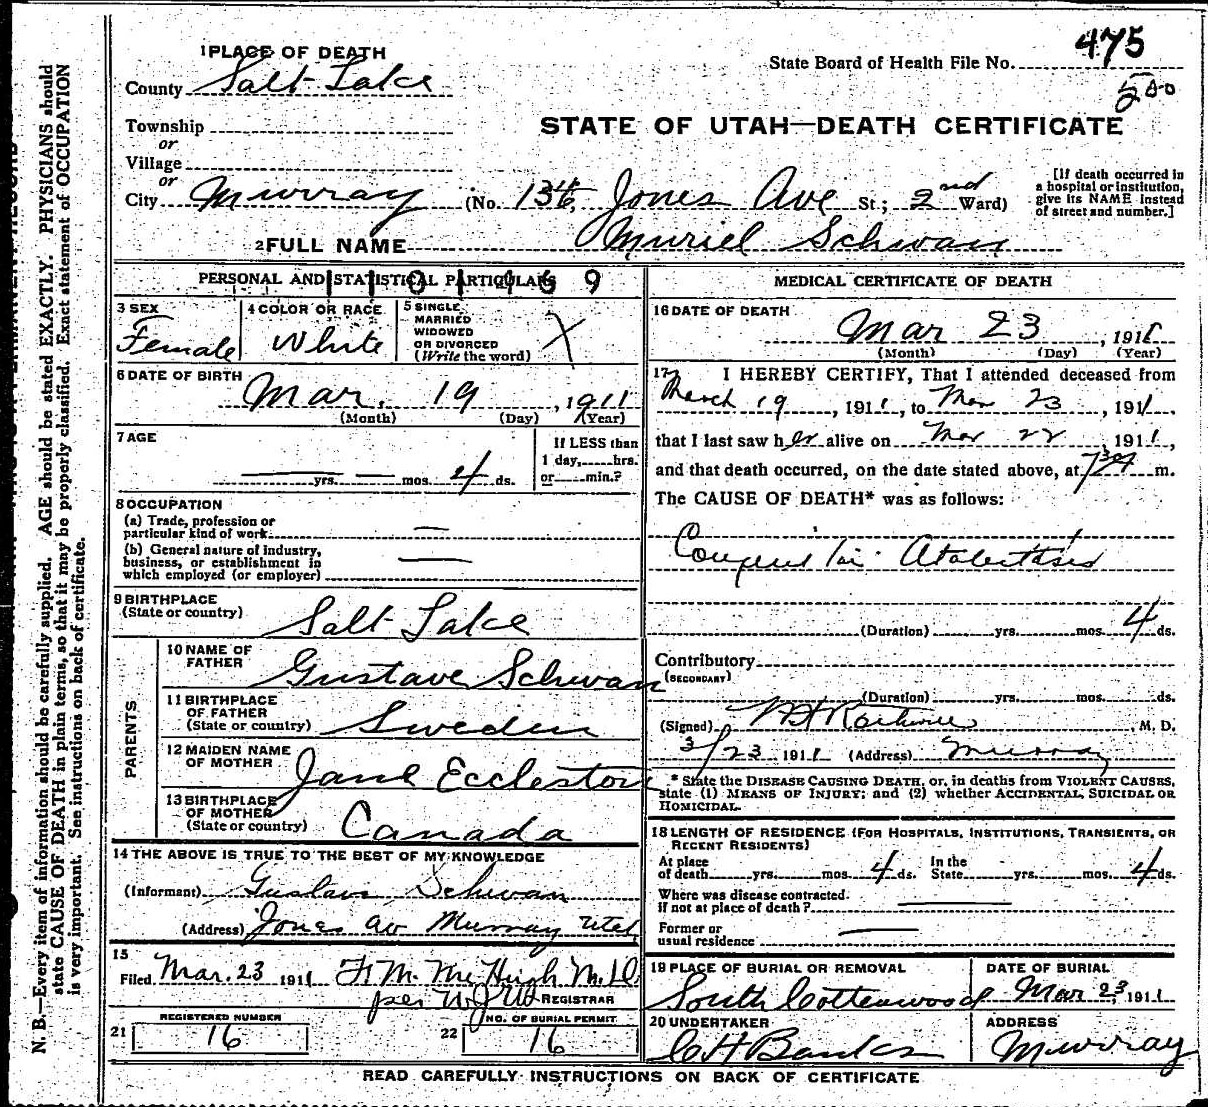 475
State Board of Health File No.
500
1 PLACE OF DEATH
County Salt Lake
STATE OF UTAH—DEATH CERTIFICATE
Township
or
Village
or
City Murray (No. 136, Jones Ave St; 2nd Ward)
[If death occurred in a hospital or institution, give its NAME instead of street and number.]
2 FULL NAME Muriel Schwan
PERSONAL AND STATISTICAL PARTICULARS
1101469
3 SEX
Female
4 COLOR OR RACE
White
5 SINGLE
MARRIED
WIDOWED
OR DIVORCED
(Write the word)
X
6 DATE OF BIRTH
Mar. 19, 1911
(Month) (Day) (Year)
7 AGE
— yrs. — mos. 4 ds.
If LESS than
1 day, hrs.
or min.?
8 OCCUPATION
(a) Trade, profession or
particular kind of work —
(b) General nature of industry,
business, or establishment in —
which employed (or employer)
9 BIRTHPLACE
(State or country) Salt Lake
PARENTS
10 NAME OF
FATHER Gustave Schwan
11 BIRTHPLACE
OF FATHER
(State or country) Sweden
12 MAIDEN NAME
OF MOTHER Jane Eccleston
13 BIRTHPLACE
OF MOTHER
(State or country) Canada
14 THE ABOVE IS TRUE TO THE BEST OF MY KNOWLEDGE
(Informant) Gustave Schwan
(Address) Jones av Murray Utah
15
Filed Mar. 23 1911 McHugh M.D.
per
REGISTRAR
REGISTERED NUMBER
21 16
NO. OF BURIAL PERMIT
22 16
MEDICAL CERTIFICATE OF DEATH
16 DATE OF DEATH
Mar 23, 1911
(Month) (Day) (Year)
17 I HEREBY CERTIFY, That I attended deceased from
March 19, 1911, to Mar 23, 1911,
that I last saw her alive on Mar 22, 1911,
and that death occurred, on the date stated above, at m.
The CAUSE OF DEATH* was as follows:
(Duration) yrs. mos. 4 ds.
Contributory
(SECONDARY)
(Duration) yrs. mos. ds.
(Signed) M. D.
3/23 1911 (Address) Murray
* State the DISEASE CAUSING DEATH, or, in deaths from VIOLENT CAUSES,
state (1) MEANS OF INJURY; and (2) whether ACCIDENTAL, SUICIDAL OR
HOMICIDAL.
18 LENGTH OF RESIDENCE (FOR HOSPITALS, INSTITUTIONS, TRANSIENTS, OR
RECENT RESIDENTS)
At place
of death yrs. mos. 4 ds.
In the
State yrs. mos. 4 ds.
Where was disease contracted.
If not at place of death? —
Former or
usual residence —
19 PLACE OF BURIAL OR REMOVAL
South Cottonwood
DATE OF BURIAL
Mar 23, 1911
20 UNDERTAKER
C H Banks
ADDRESS
Murray
READ CAREFULLY INSTRUCTIONS ON BACK OF CERTIFICATE
N. B.—Every item of information should be carefully supplied. AGE should be stated EXACTLY. PHYSICIANS should
state CAUSE OF DEATH in plain terms, so that it may be properly classified. Exact statement of OCCUPATION
is very important. See instructions on back of certificate.